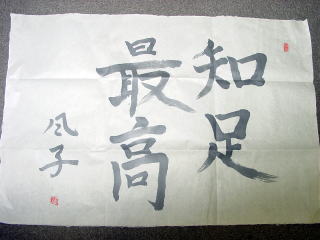 知足
最高
风子